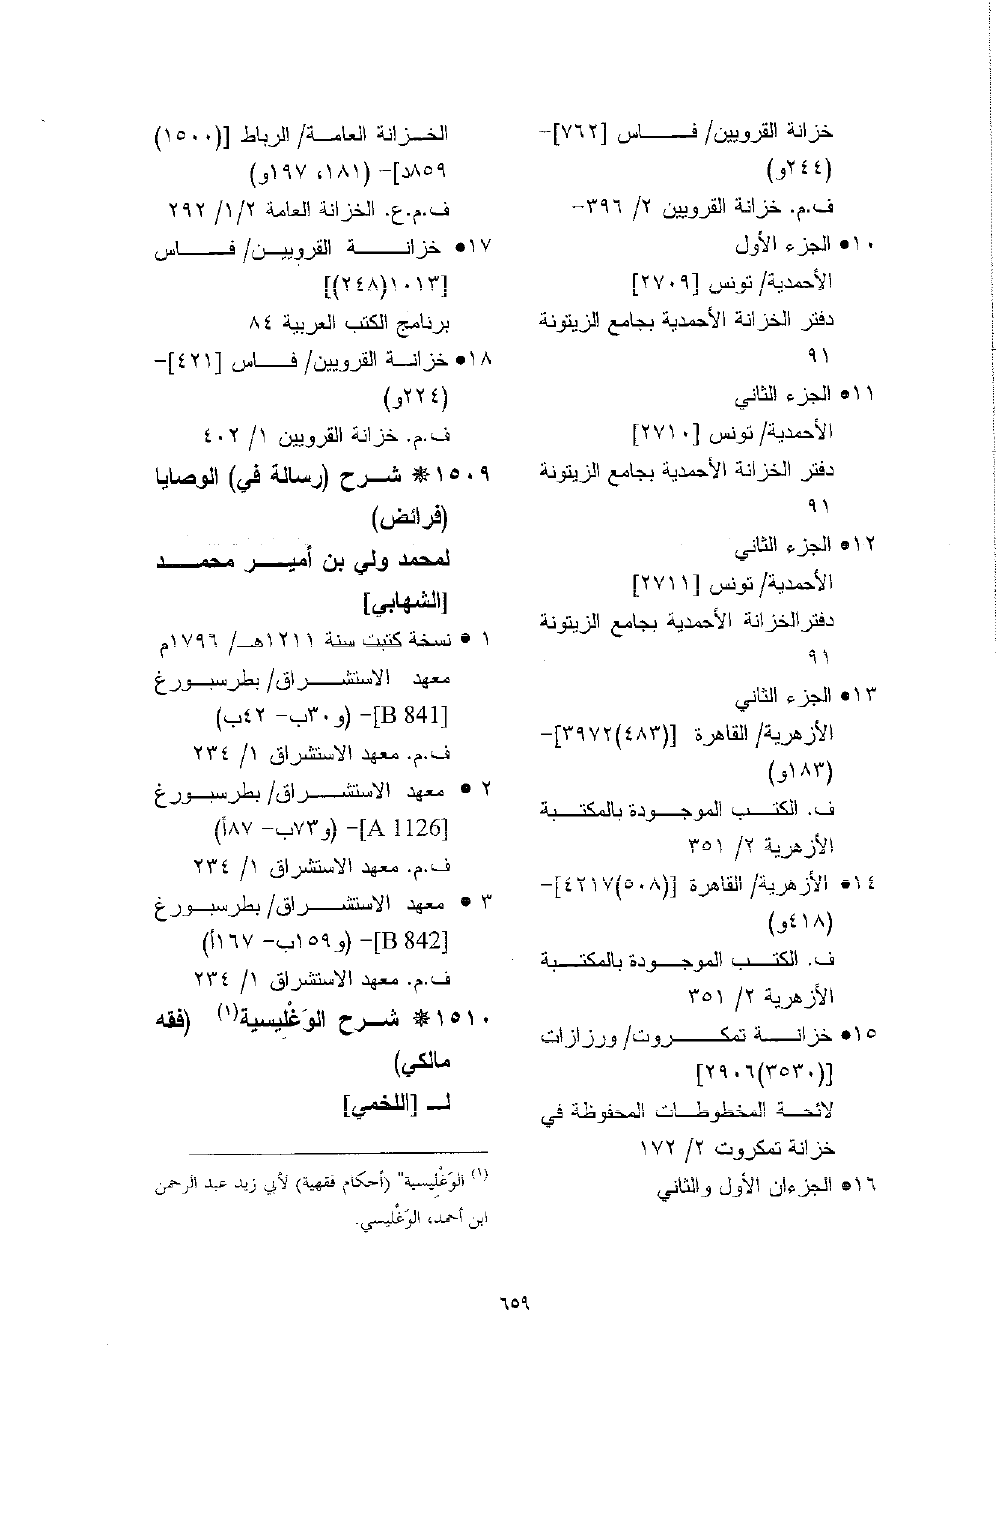 خزانة القرويين/ فـــاس [٧٦٢]-
(٢٤٤و)
ف.م. خزانة القرويين ٢/ ٣٩٦-
١٠• الجزء الأول
الأحمدية/ تونس [٢٧٠٩]
دفتر الخزانة الأحمدية بجامع الزيتونة
٩١
١١• الجزء الثاني
الأحمدية/ تونس [٢٧١٠]
دفتر الخزانة الأحمدية بجامع الزيتونة
٩١
١٢• الجزء الثاني
الأحمدية/ تونس [٢٧١١]
دفترالخزانة الأحمدية بجامع الزيتونة
٩١
١٣• الجزء الثاني
الأزهرية/ القاهرة [(٤٨٣)٣٩٧٢]-
(١٨٣و)
ف. الكتب الموجودة بالمكتبة
الأزهرية ٢/ ٣٥١
١٤• الأزهرية/ القاهرة [(٥٠٨)٤٢١٧]-
(٤١٨و)
ف. الكتب الموجودة بالمكتبة
الأزهرية ٢/ ٣٥١
١٥• خزانة تمكروت/ ورزازات
[(٣٥٣٠)٢٩٠٦]
لائحة المخطوطات المحفوظة في
خزانة تمكروت ٢/ ١٧٢
١٦• الجزءان الأول والثاني
الخزانة العامة/ الرباط [(١٥٠٠)
٨٥٩د]- (١٨١، ١٩٧و)
ف.م.ع. الخزانة العامة ١/٢/ ٢٩٢
١٧• خزانة القرويين/ فاس
[١٠١٣(٢٤٨)]
برنامج الكتب العربية ٨٤
١٨• خزانة القرويين/ فاس [٤٢١]-
(٢٢٤و)
ف.م. خزانة القرويين ١/ ٤٠٢
١٥٠٩* شرح (رسالة في) الوصايا
(فرائض)
لمحمد ولي بن أمير محمد
[الشهابي]
١ • نسخة كتبت سنة ١٢١١هـ/ ١٧٩٦م
معهد الاستشراق/ بطرسبورغ
[B 841]- (و٣٠ب- ٤٢ب)
ف.م. معهد الاستشراق ١/ ٢٣٤
٢ • معهد الاستشراق/ بطرسبورغ
[A 1126]- (و٧٣ب- ٨٧أ)
ف.م. معهد الاستشراق ١/ ٢٣٤
٣ • معهد الاستشراق/ بطرسبورغ
[B 842]- (و١٥٩ب- ١٦٧أ)
ف.م. معهد الاستشراق ١/ ٢٣٤
١٥١٠* شرح الوَغْليسية(١) (فقه
مالكي)
لـ [اللخمي]
(١) الوَغْلِيسية" (أحكام فقهية) لأبي زيد عبد الرحمن
ابن أحمد، الوَغْليسي.
٦٥٩